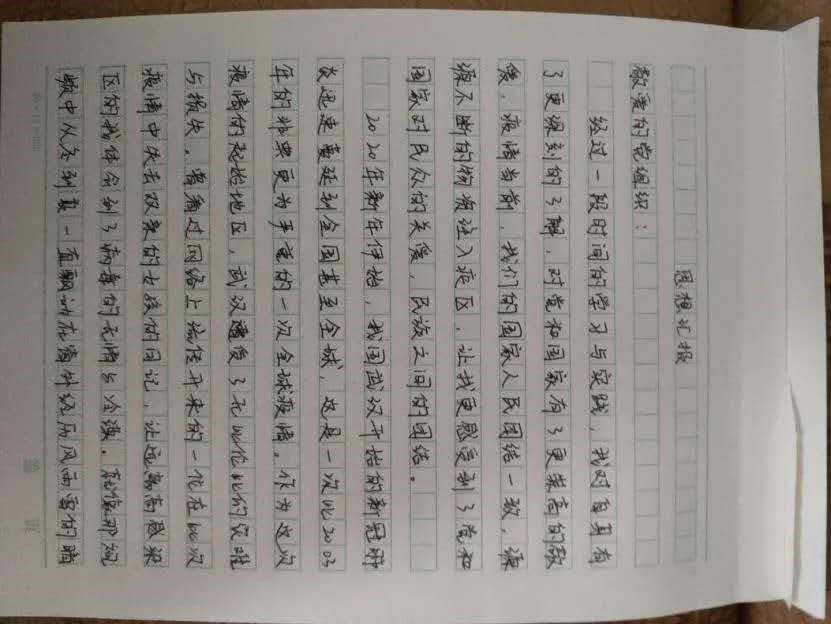 思想汇报
敬爱的党组织:
经过一段时间的学习与实践,我对自身有
了更深刻的了解,对党和国家有了更崇高的敬
爱,疫情当前,我们的国家人民团结一致,源
源不断的物资注入疫区,让我更感受到了党和
国家对民众的关爱,民族之间的团结。
2020年新年伊始,我国武汉开始的新冠肺
炎迅速蔓延到全国甚至全球,这是一次比2003
年的非典更为严重的一次全球疫情。作为这次
疫情的起始地区,武汉遭受了无比伦比的灾难
与损失,曾看过网络上流传开来的一位在此次
疫情中失去双亲的女孩的日记,让远离高感染
区的我体会到了病毒的无情与冷漠。就像那视
频中从冬到夏一直飘动在窗外经历风雨雷的晴